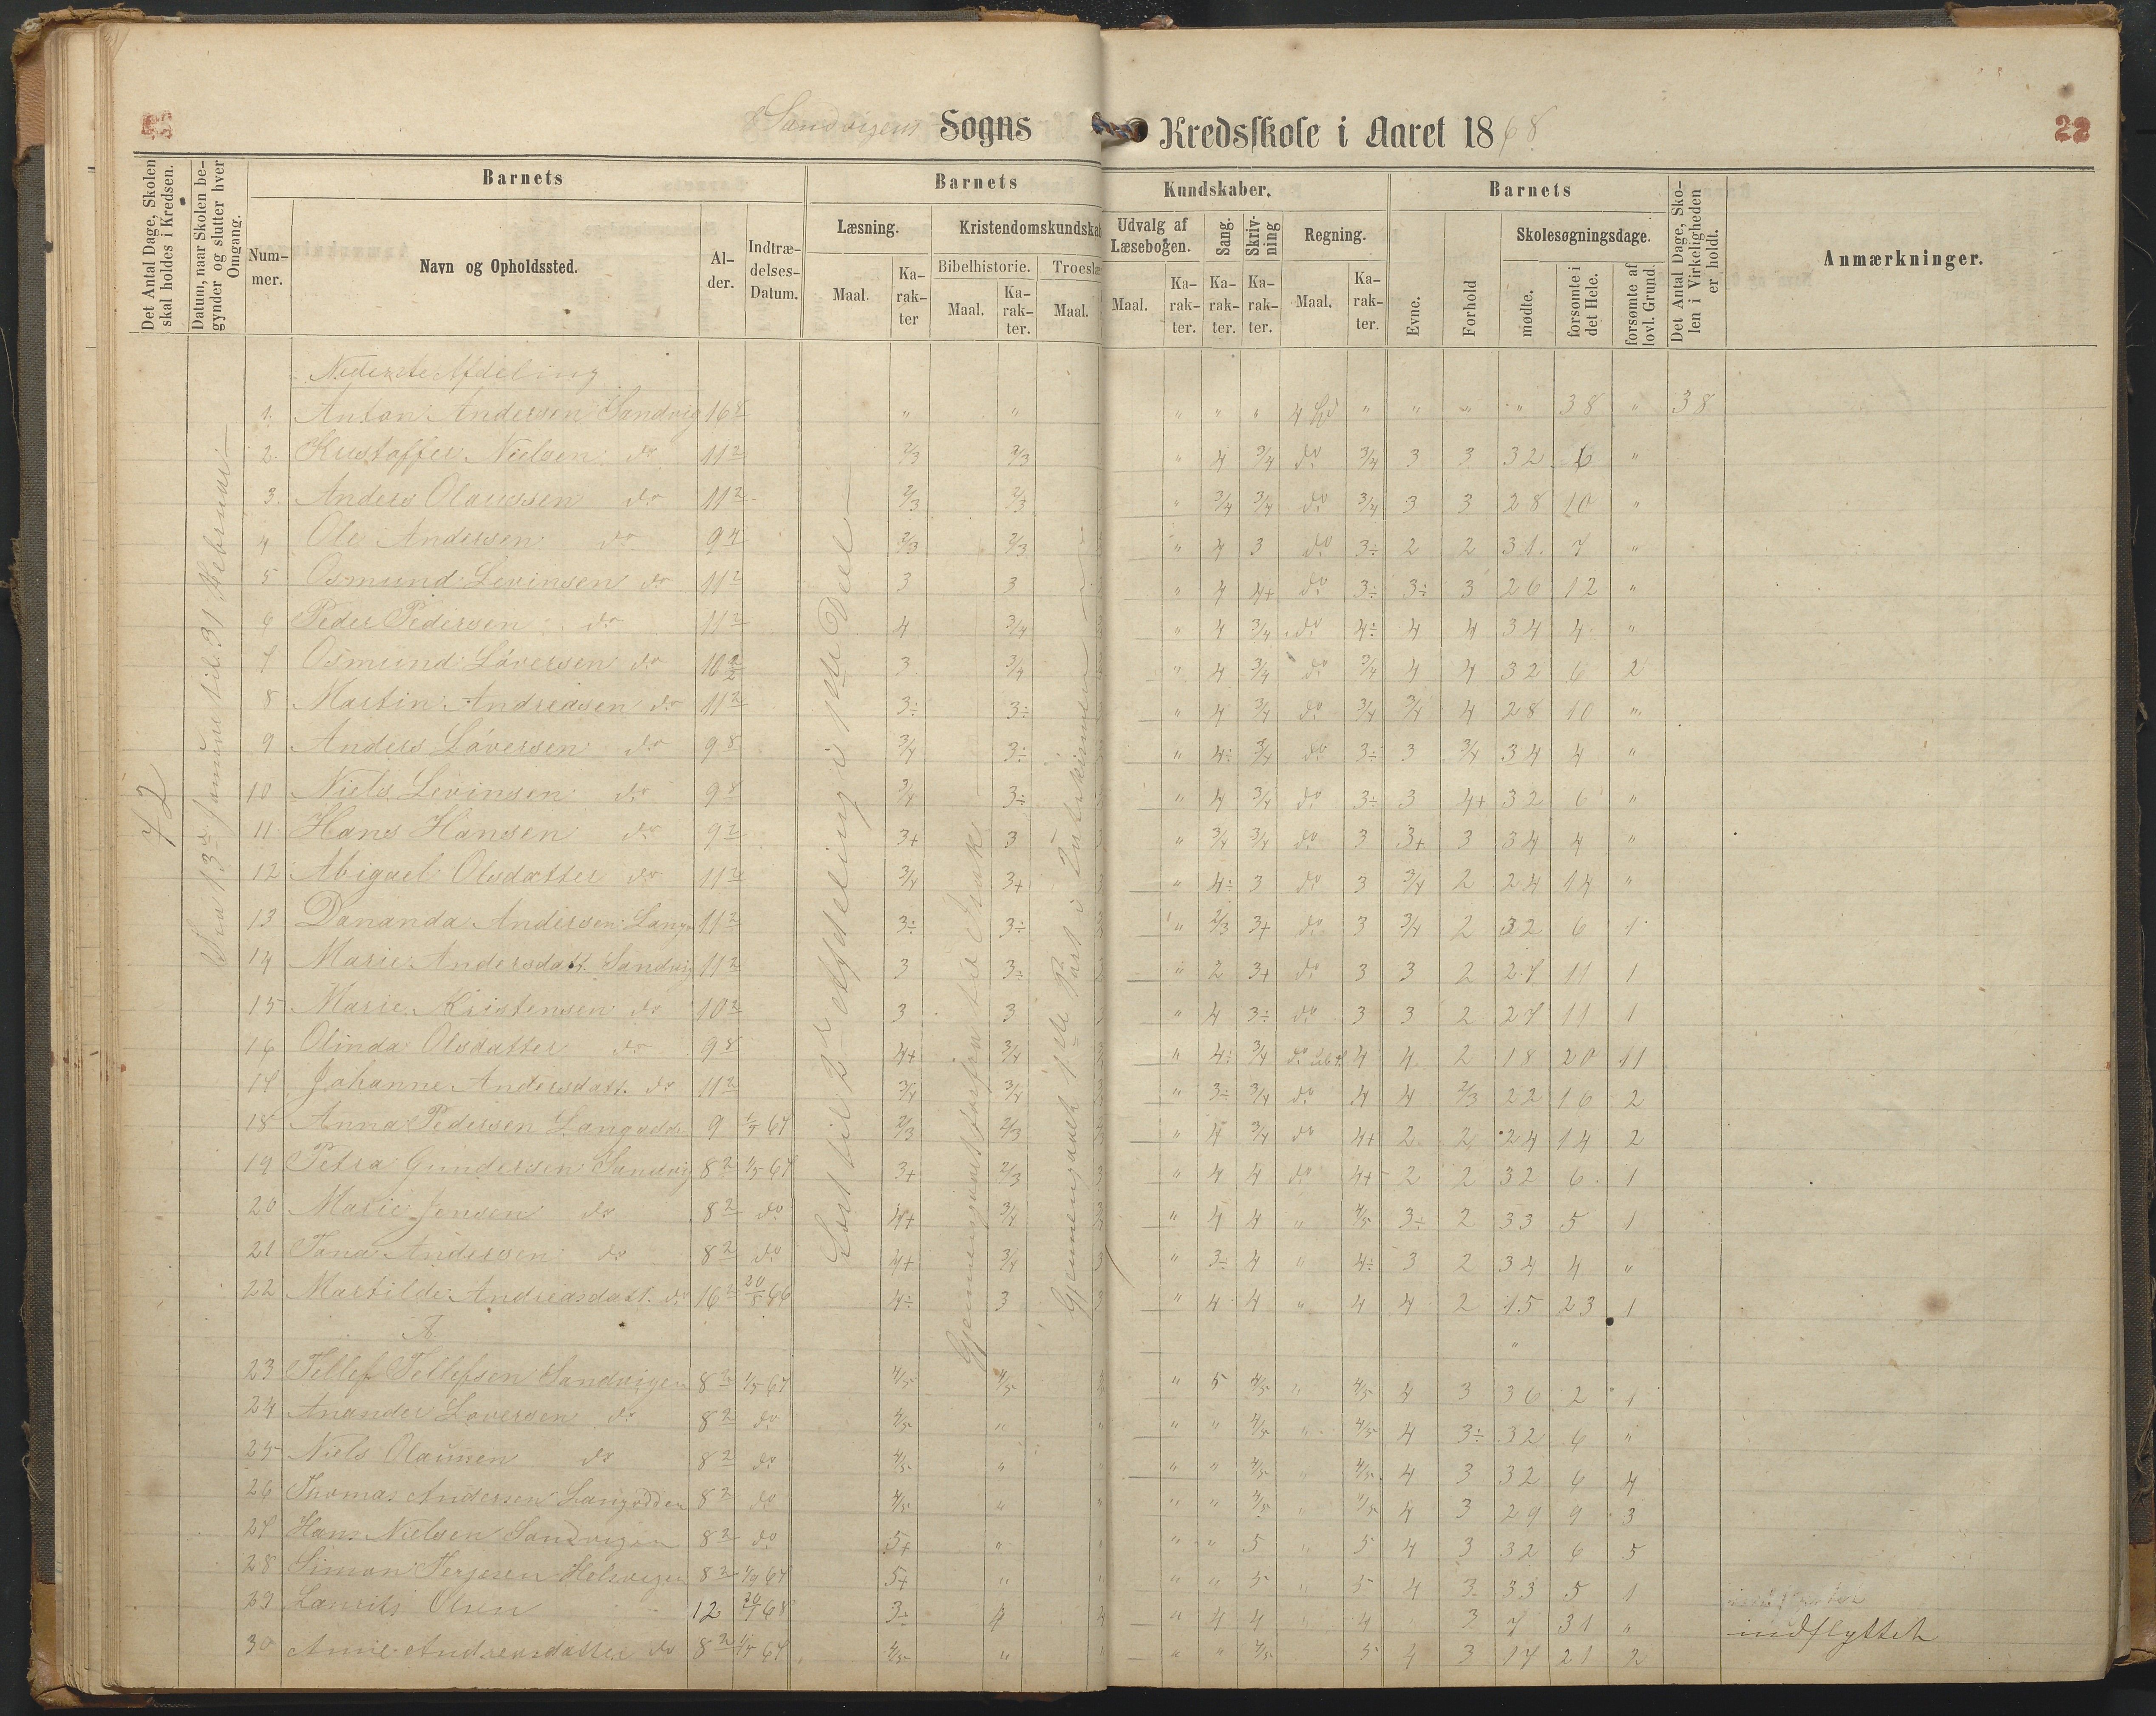 Sandvigens Sogns Kredsskole i Aaret 1868
22
Det Antal Dage, Skolen skal holdes i Kredsen.
Datum, naar Skolen begynder og slutter hver Omgang.
Barnets
Nummer.
Navn og Opholdssted.
Alder.
Indtrædelses-Datum.
Barnets
Læsning.
Maal.
Karakter
Kristendomskundskab
Bibelhistorie.
Maal.
Karakter.
Troeslær
Maal.
Kundskaber.
Udvalg af Læsebogen.
Maal.
Karakter.
Sang.
Karakter.
Skrivning
Karakter.
Regning.
Maal.
Karakter.
Barnets
Evne.
Forhold
Skolesøgningsdage.
mødte.
forsømte i det Hele.
forsømte af lovl. Grund.
Det Antal Dage, Skolen i Virkeligheden er holdt.
Anmærkninger.
72
Fra 13de Januar til 31 Februar
Læst til 2den Afdeling i 1ste Deel
Gjennemgaaet forfra til Isak
Nederste Afdeling
1. Anton Andersen Sandvig 16 8 " " " " " " " " " 38 " 38
2. Kristoffer Nielsen do 11 2 2/3 2/3 " 4 3/4 do 3/4 3 3 32 6 "
3. Anders Olaussen do 11 2 2/3 2/3 " 3/4 3/4 do 3/4 3 3 28 10 "
4 Ole Andersen do 9 4 2/3 2/3 " 4 3 do 3÷ 2 2 31 7 "
5 Osmund Levinsen do 11 2 3 3 " 4 4+ do 3÷ 3÷ 3 26 12 "
6 Peder Pedersen do 11 2 4 3/4 " 4 3/4 do 4÷ 4 4 34 4 "
7 Osmund Løversen do 10 3 3/4 " 4 3/4 do 3/4 4 4 32 6 2
8 Martin Andreasen do 11 2 3÷ 3÷ " 4 3/4 do 3/4 3/4 4 28 10 "
9 Anders Løversen do 9 8 3/4 3÷ " 4÷ 3/4 do 3÷ 3 3/4 34 4 "
10 Niels Levinsen do 9 8 3/4 3÷ " 4 3/4 do 3÷ 3 4+ 32 6 "
11 Hans Hansen do 9 2 3+ 3 " 3/4 3/4 do 3 3+ 3 34 4 "
12 Abigael Olsdatter do 11 2 3/4 3+ " 4÷ 3 do 3 3/4 2 24 14 "
13 Dananda Andersen 11 2 3÷ 3÷ " 2/3 3+ do 3 3/4 2 32 6 1
14 Marie Andersdatt. Sandvig 11 2 3 3÷ " 2 3+ do 3 3 2 27 11 1
15 Marie Kristensen do 10 2 3 3 " 4 3÷ do 3 3 2 27 11 1
16 Olinda Olsdatter do 9 8 4+ 3/4 " 4÷ 3/4 do 4 4 2 18 20 11
17 Johanne Andersdatt. do 11 2 3/4 3/4 " 3÷ 3/4 do 4 4 2/3 22 16 2
18 Anna Pedersen Langodde 9 67 2/3 2/3 " 4 3/4 do 4+ 2 2 24 14 2
19 Petra Gundersen Sandvig 8 2 1/5 67 3+ 2/3 " 4 4 do 4+ 2 2 32 6 1
20 Marie Jensen do 8 2 do 4+ 3/4 " 4 4 " 4/5 3÷ 2 33 5 1
21 Tona Andersen do 8 2 do 4+ 3/4 " 3÷ 4 " 4÷ 3 2 34 4 "
22 Martilde Andreasdatt. do 16 2 20/8 66 4÷ 3 " 4 4 " 4 4 2 15 23 1
23 Tellef Tellefsen Sandvigen 8 2 1/5 67 4/5 4/5 " 5 4/5 " 4/5 4 3 36 2 1
24 Anander Løversen do 8 2 do 4/5 " " " 4/5 " 4/5 4 3÷ 32 6 "
25 Niels Olaussen do 8 2 do 4/5 " " " 4/5 " 4/5 4 3 32 6 4
26 Thomas Andersen Langodden 8 2 do 4/5 " " " 4/5 " 4/5 4 3 29 9 3
27 Hans Nielsen Sandvigen 8 2 do 5+ " " " 5 " 5 4 3 32 6 5
28 Simon Terjesen Holvigen 8 2 67 5+ " " " 5 " 5 4 3 33 5 1
29 Laurits Olsen 12 68 3÷ 4 " 4 4 " 4 3 7 31 " indflyttet
30 Anne Andreasdatter do 8 2 67 4/5 " " " 4/5 5 4 3 17 21 2